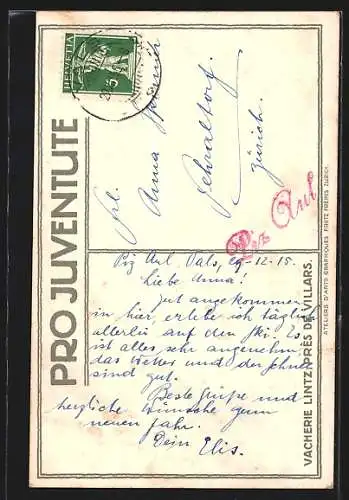 HELVETIA
5
PRO JUVENTUTE
Frl.
Anna
Fehraltorf.
Zürich.
Piz Aul
Piz Aul, Vals, 29-12-15.
Liebe Anna!
Gut angekommen
in hier, erlebe ich täglich
allerlei auf den Ski. Es
ist alles sehr angenehm,
das Wetter und der Schnee
sind gut.
Beste Grüsse und
herzliche Wünsche zum
neuen Jahr.
Dein Elis.
VACHERIE LINTZ PRÈS DE VILLARS.
ATELIERS D'ARTS GRAPHIQUES FRETZ FRÈRES ZURICH.